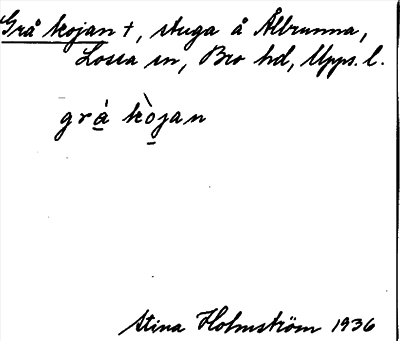 Grå kojan +, stuga å Ålbrunna,
Lossa sn, Bro hd, Upps. l.
grå̀ kòjan
Stina Holmström 1936